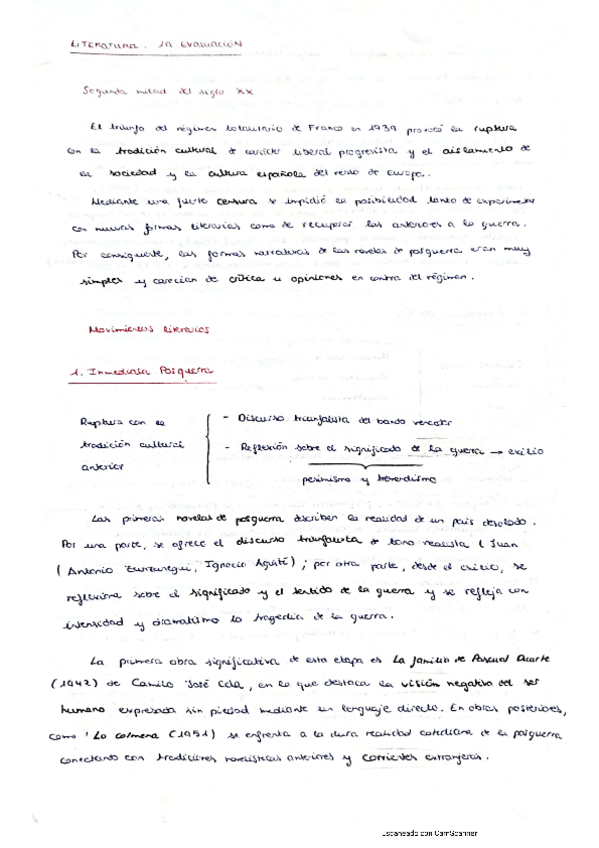 LITERATURA. 1a EVALUACIÓN
Segunda mitad del siglo XX
El triunfo del régimen totalitario de Franco en 1939 provocó la ruptura
con la tradición cultural de carácter liberal progresista y el aislamiento de
la sociedad y la cultura española del resto de Europa.
Mediante una fuerte censura se impidió la posibilidad tanto de experimentar
con nuevas formas literarias como de recuperar las anteriores a la guerra.
Por consiguiente, las formas narrativas de las novelas de posguerra eran muy
simples y carecían de crítica u opiniones en contra del régimen.
Movimientos literarios
1. Inmediata Posguerra
Ruptura con la
tradición cultural
anterior
- Discurso triunfalista del bando vencedor
- Reflexión sobre el significado de la guerra → exilio
pesimismo y tremendismo
Las primeras novelas de posguerra describen la realidad de un país desolado.
Por una parte, se ofrece el discurso triunfalista de tono realista (Juan
(Antonio Zunzunegui, Ignacio Agustí); por otra parte, desde el exilio, se
reflexiona sobre el significado y el sentido de la guerra y se refleja con
intensidad y dramatismo la tragedia de la guerra.
La primera obra significativa de esta etapa es La familia de Pascual Duarte
(1942) de Camilo José Cela, en la que destaca la visión negativa del ser
humano expresada sin piedad mediante un lenguaje directo. En obras posteriores,
como 'La colmena (1951) se enfrenta a la dura realidad cotidiana de la posguerra
conectando con tradiciones novelísticas anteriores y corrientes extranjeras.
Escaneado con CamScanner